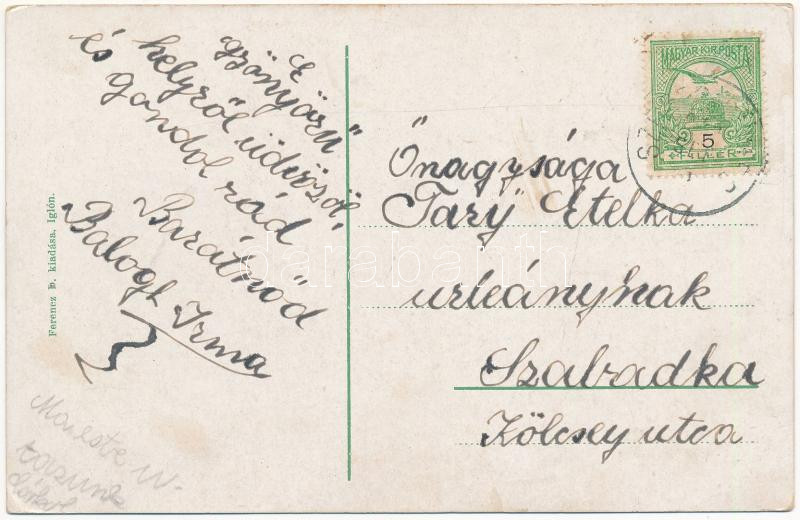 E
gyönyörű
helyről üdvözöl,
és gondol rád
Barátnőd
Balogh Irma
Ferencz B. kiadása, Iglón.
MAGYAR KIR. POSTA
5
FILLÉR
Őnagysága
Tary Etelka
urleánynak
Szabadka
Kölcsey utca
darabanth